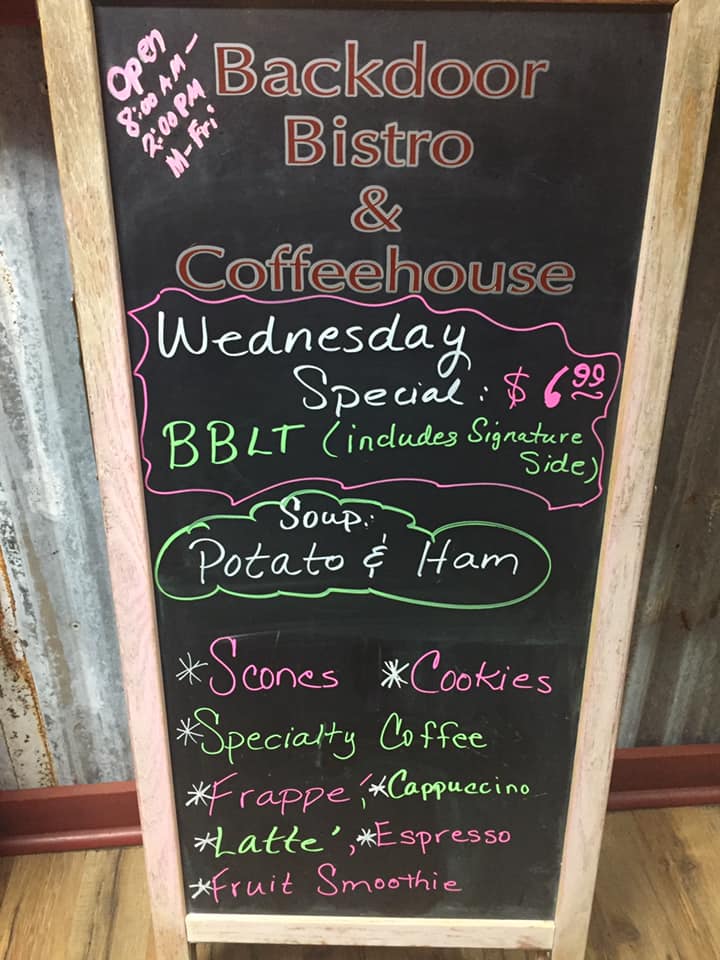 Open
8:00 AM -
2:00 PM
M-Fri
Backdoor
Bistro
&
Coffeehouse
Wednesday
Special: $6.99
BBLT (includes Signature
Side)
Soup:
Potato & Ham
*Scones *Cookies
*Specialty Coffee
*Frappe', *Cappuccino
*Latte', *Espresso
*Fruit Smoothie